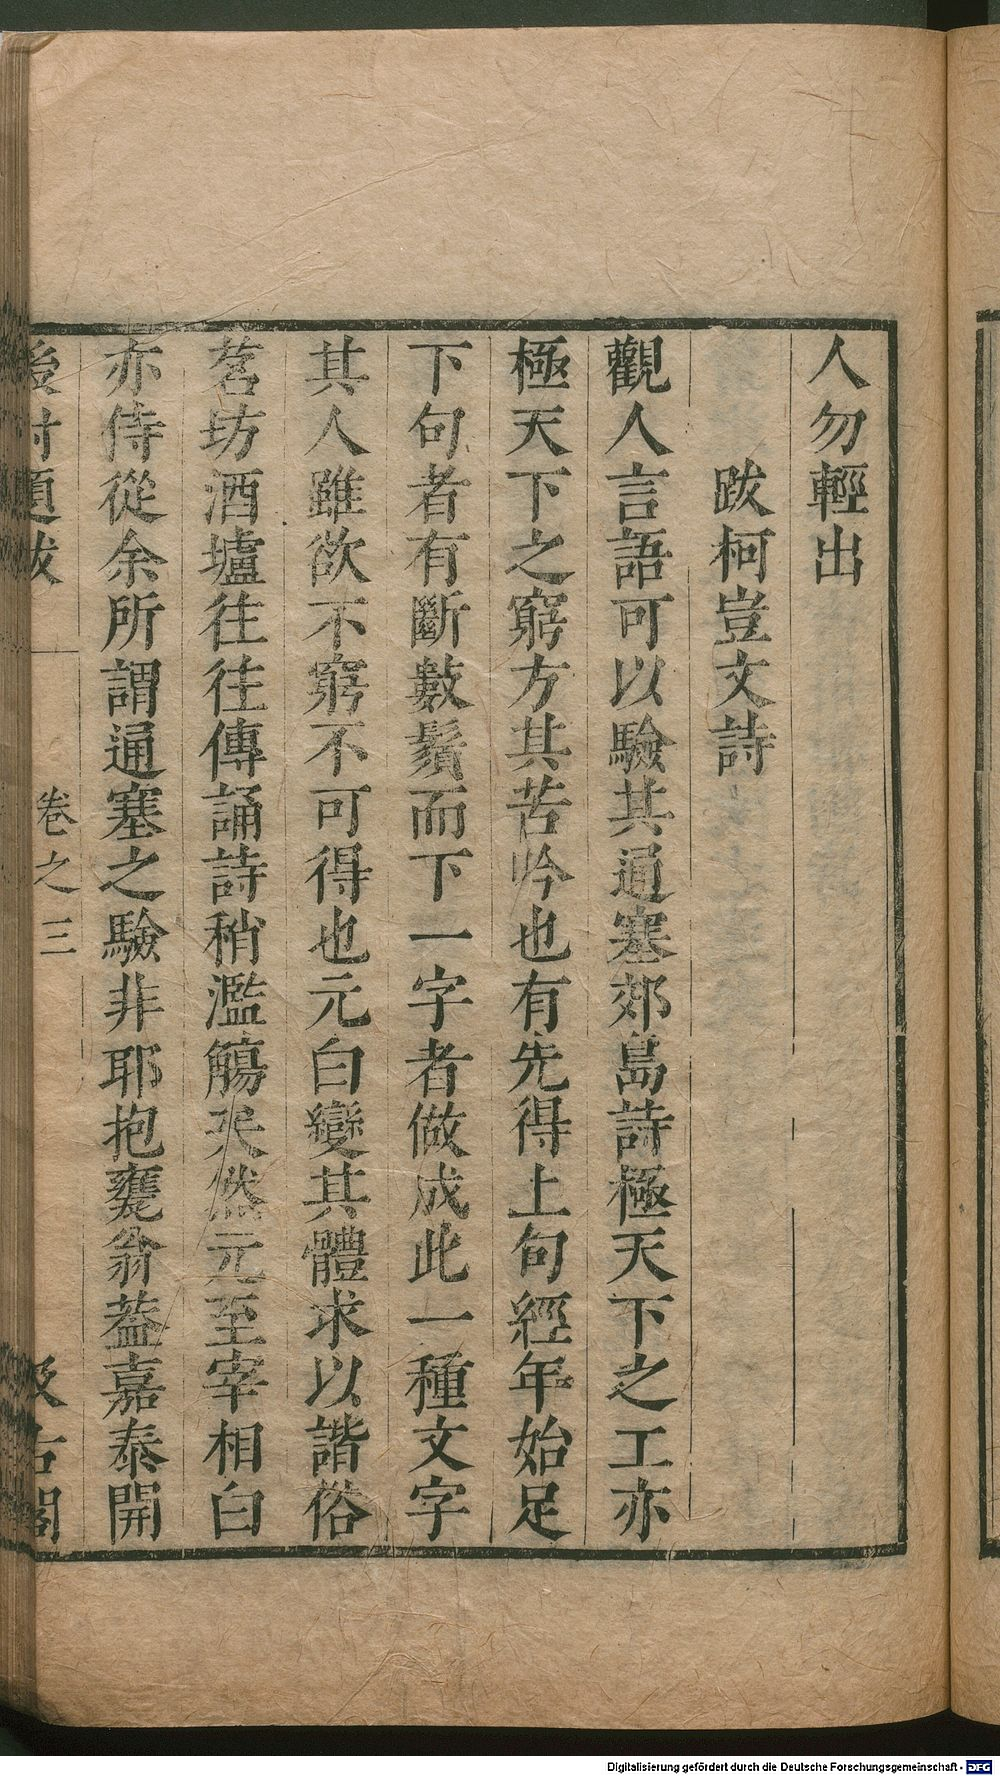 人勿輕出
跋柯豈文詩
觀人言語可以驗其通塞郊島詩極天下之工亦
極天下之窮方其苦吟也有先得上句經年始足
下句者有斷數鬚而下一字者做成此一種文字
其人雖欲不窮不可得也元白變其體求以諧俗
茗坊酒壚往往傳誦詩稍濫觴矣然元至宰相白
亦侍從余所謂通塞之驗非耶抱甕翁葢嘉泰開
後村題跋 卷之三 汲古閣
Digitalisierung gefördert durch die Deutsche Forschungsgemeinschaft - DFG